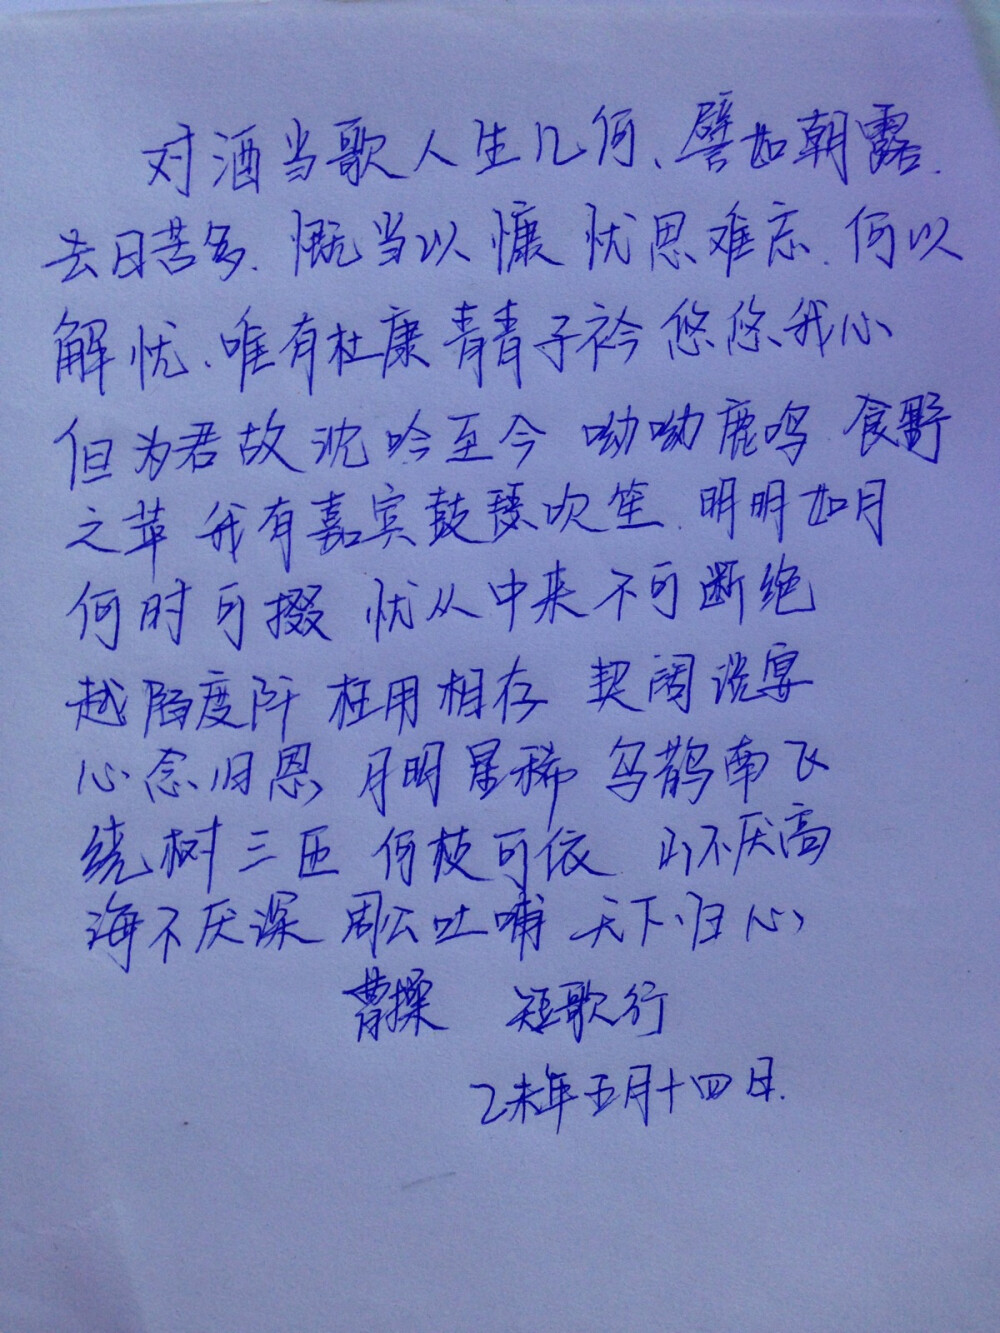 对酒当歌人生几何、譬如朝露.
去日苦多. 慨当以慷 忧思难忘. 何以
解忧、唯有杜康 青青子衿 悠悠我心
但为君故 沈吟至今 呦呦鹿鸣 食野
之苹 我有嘉宾鼓瑟吹笙. 明明如月
何时可掇 忧从中来不可断绝
越陌度阡 枉用相存 契阔谈宴
心念旧恩 月明星稀 乌鹊南飞
绕树三匝 何枝可依 山不厌高
海不厌深 周公吐哺 天下归心
曹操 短歌行
乙未年五月十四日.